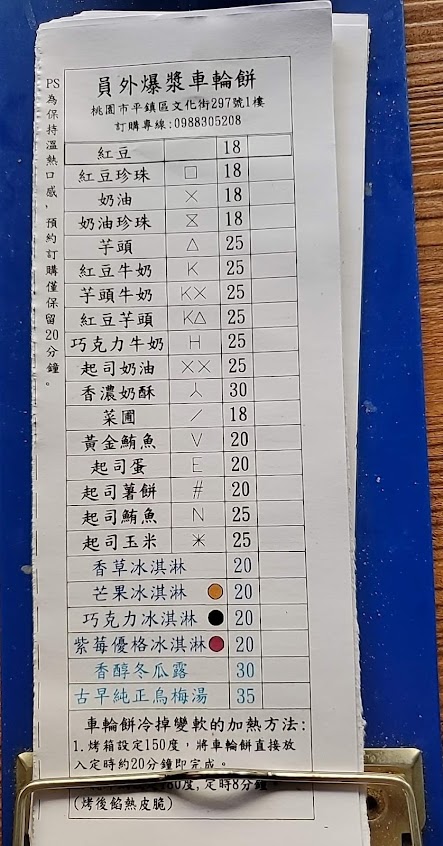 員外爆漿車輪餅
桃園市平鎮區文化街297號1樓
訂購專線:0988305208
PS為保持溫熱口感，預約訂購僅保留20分鐘。
紅豆 18
紅豆珍珠 □ 18
奶油 × 18
奶油珍珠 18
芋頭 △ 25
紅豆牛奶 K 25
芋頭牛奶 K× 25
紅豆芋頭 K△ 25
巧克力牛奶 H 25
起司奶油 ×× 25
香濃奶酥 人 30
菜圃 / 18
黃金鮪魚 V 20
起司蛋 E 20
起司薯餅 # 20
起司鮪魚 N 25
起司玉米 25
香草冰淇淋 20
芒果冰淇淋 20
巧克力冰淇淋 20
紫莓優格冰淇淋 20
香醇冬瓜露 30
古早純正烏梅湯 35
車輪餅冷掉變軟的加熱方法:
1.烤箱設定150度，將車輪餅直接放
入定時約20分鐘即完成。
度,定時8分鐘。
(烤後餡熱皮脆)